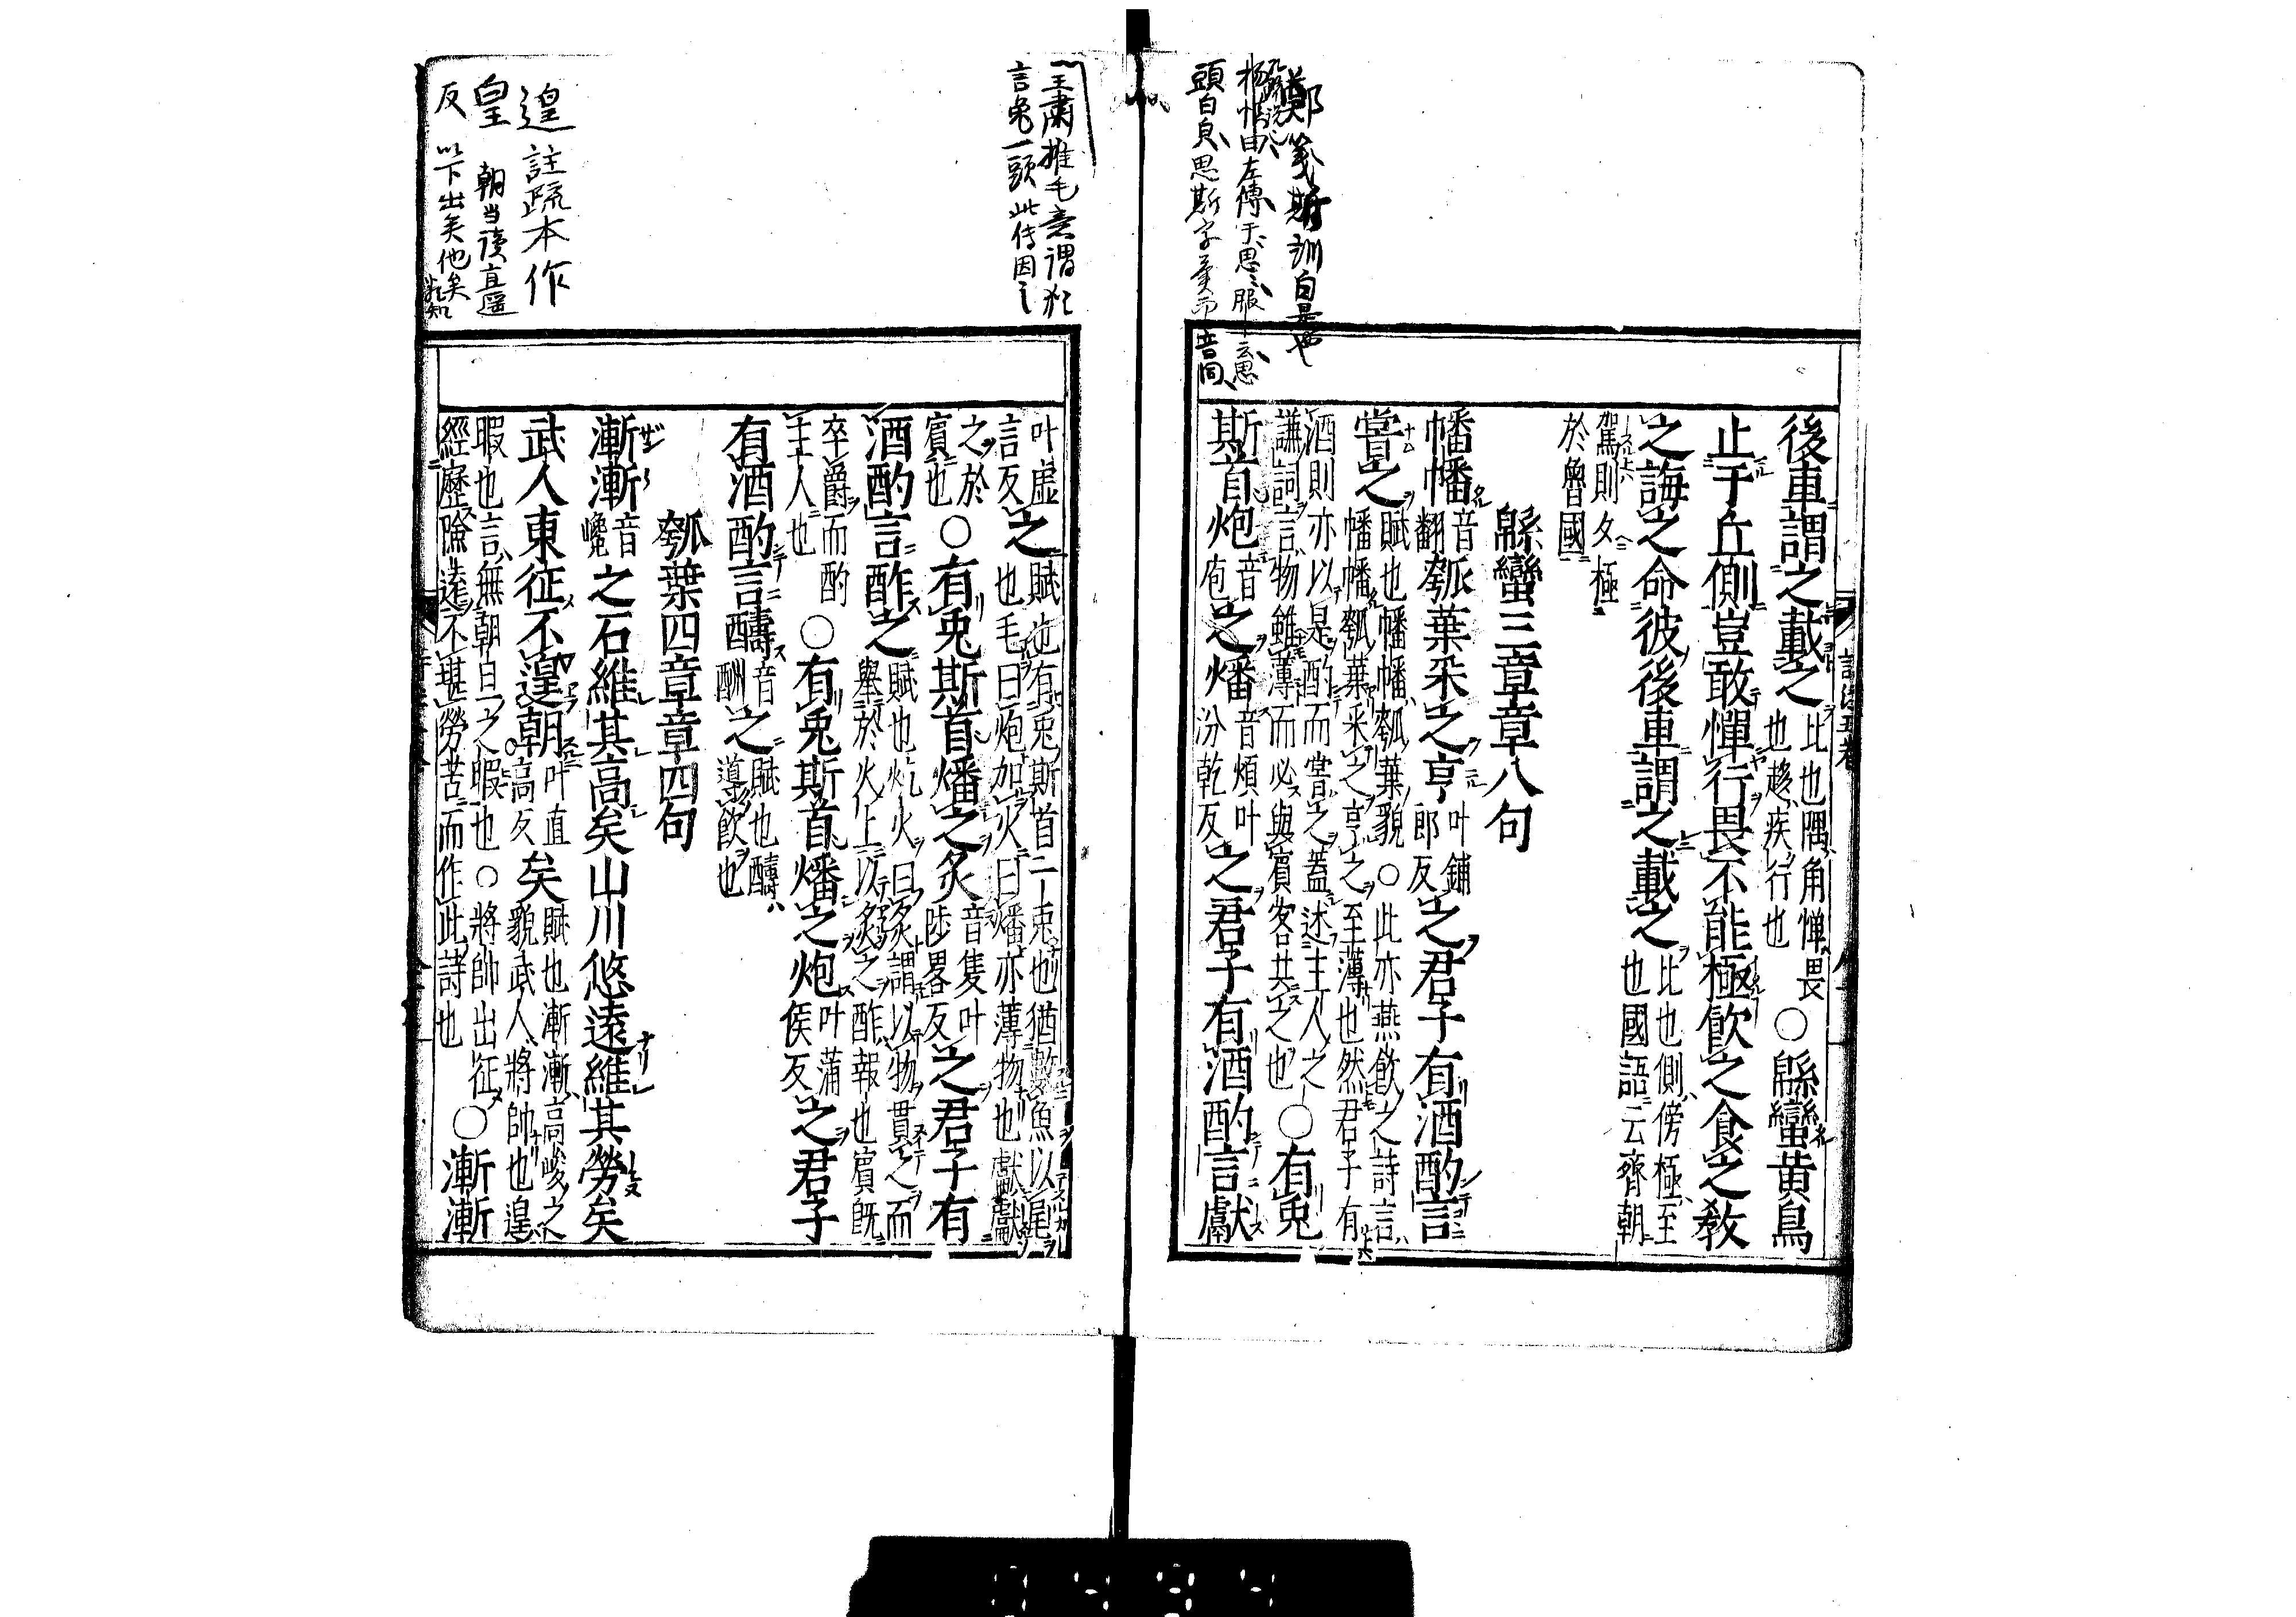 鄭箋斯訓白是也
頭白皃思斯字異而音同
後車謂之載之比也隅角憚畏也趨疾行也○緜蠻黄鳥
止于丘側豈敢憚行畏不能極飲之食之敎
之誨之命彼後車謂之載之比也側傍極至也國語云齊朝
駕則夕極於魯國
緜蠻三章章八句
幡幡音翻瓠葉采之亨叶鋪郎反之君子有酒酌言
嘗之賦也幡幡瓠葉貌○此亦燕飲之詩言幡幡瓠葉采之亨之至薄也然君子有
酒則亦以是酌而嘗之蓋述主人之謙詞言物雖薄而必與賓客共之也○有兎
斯首炮音庖之燔音煩叶汾乾反之君子有酒酌言獻
王肅推毛意謂
言兔一頭此傳因之
叶虛言反之賦也有兎斯首一兎也猶數魚以尾也毛曰炮加火曰燔亦薄物也獻獻
之於賓也○有兎斯首燔之炙音隻叶陟畧反之君子有
酒酌言酢之賦也炕火曰炙謂以物貫之而舉於火上以炙之酢報也賓旣
卒爵而酌主人也○有兎斯首燔之炮叶蒲侯反之君子
有酒酌言醻音酬之賦也醻導飲也
瓠葉四章章四句
漸漸音巉之石維其高矣山川悠遠維其勞矣
武人東征不遑朝叶直高反矣賦也漸漸高峻之貌武人將帥也遑
暇也言無朝旦之暇也○將帥出征經歷險遠不堪勞苦而作此詩也○漸漸
遑註疏本作
皇 朝当读直遥
反 以下出矣他矣